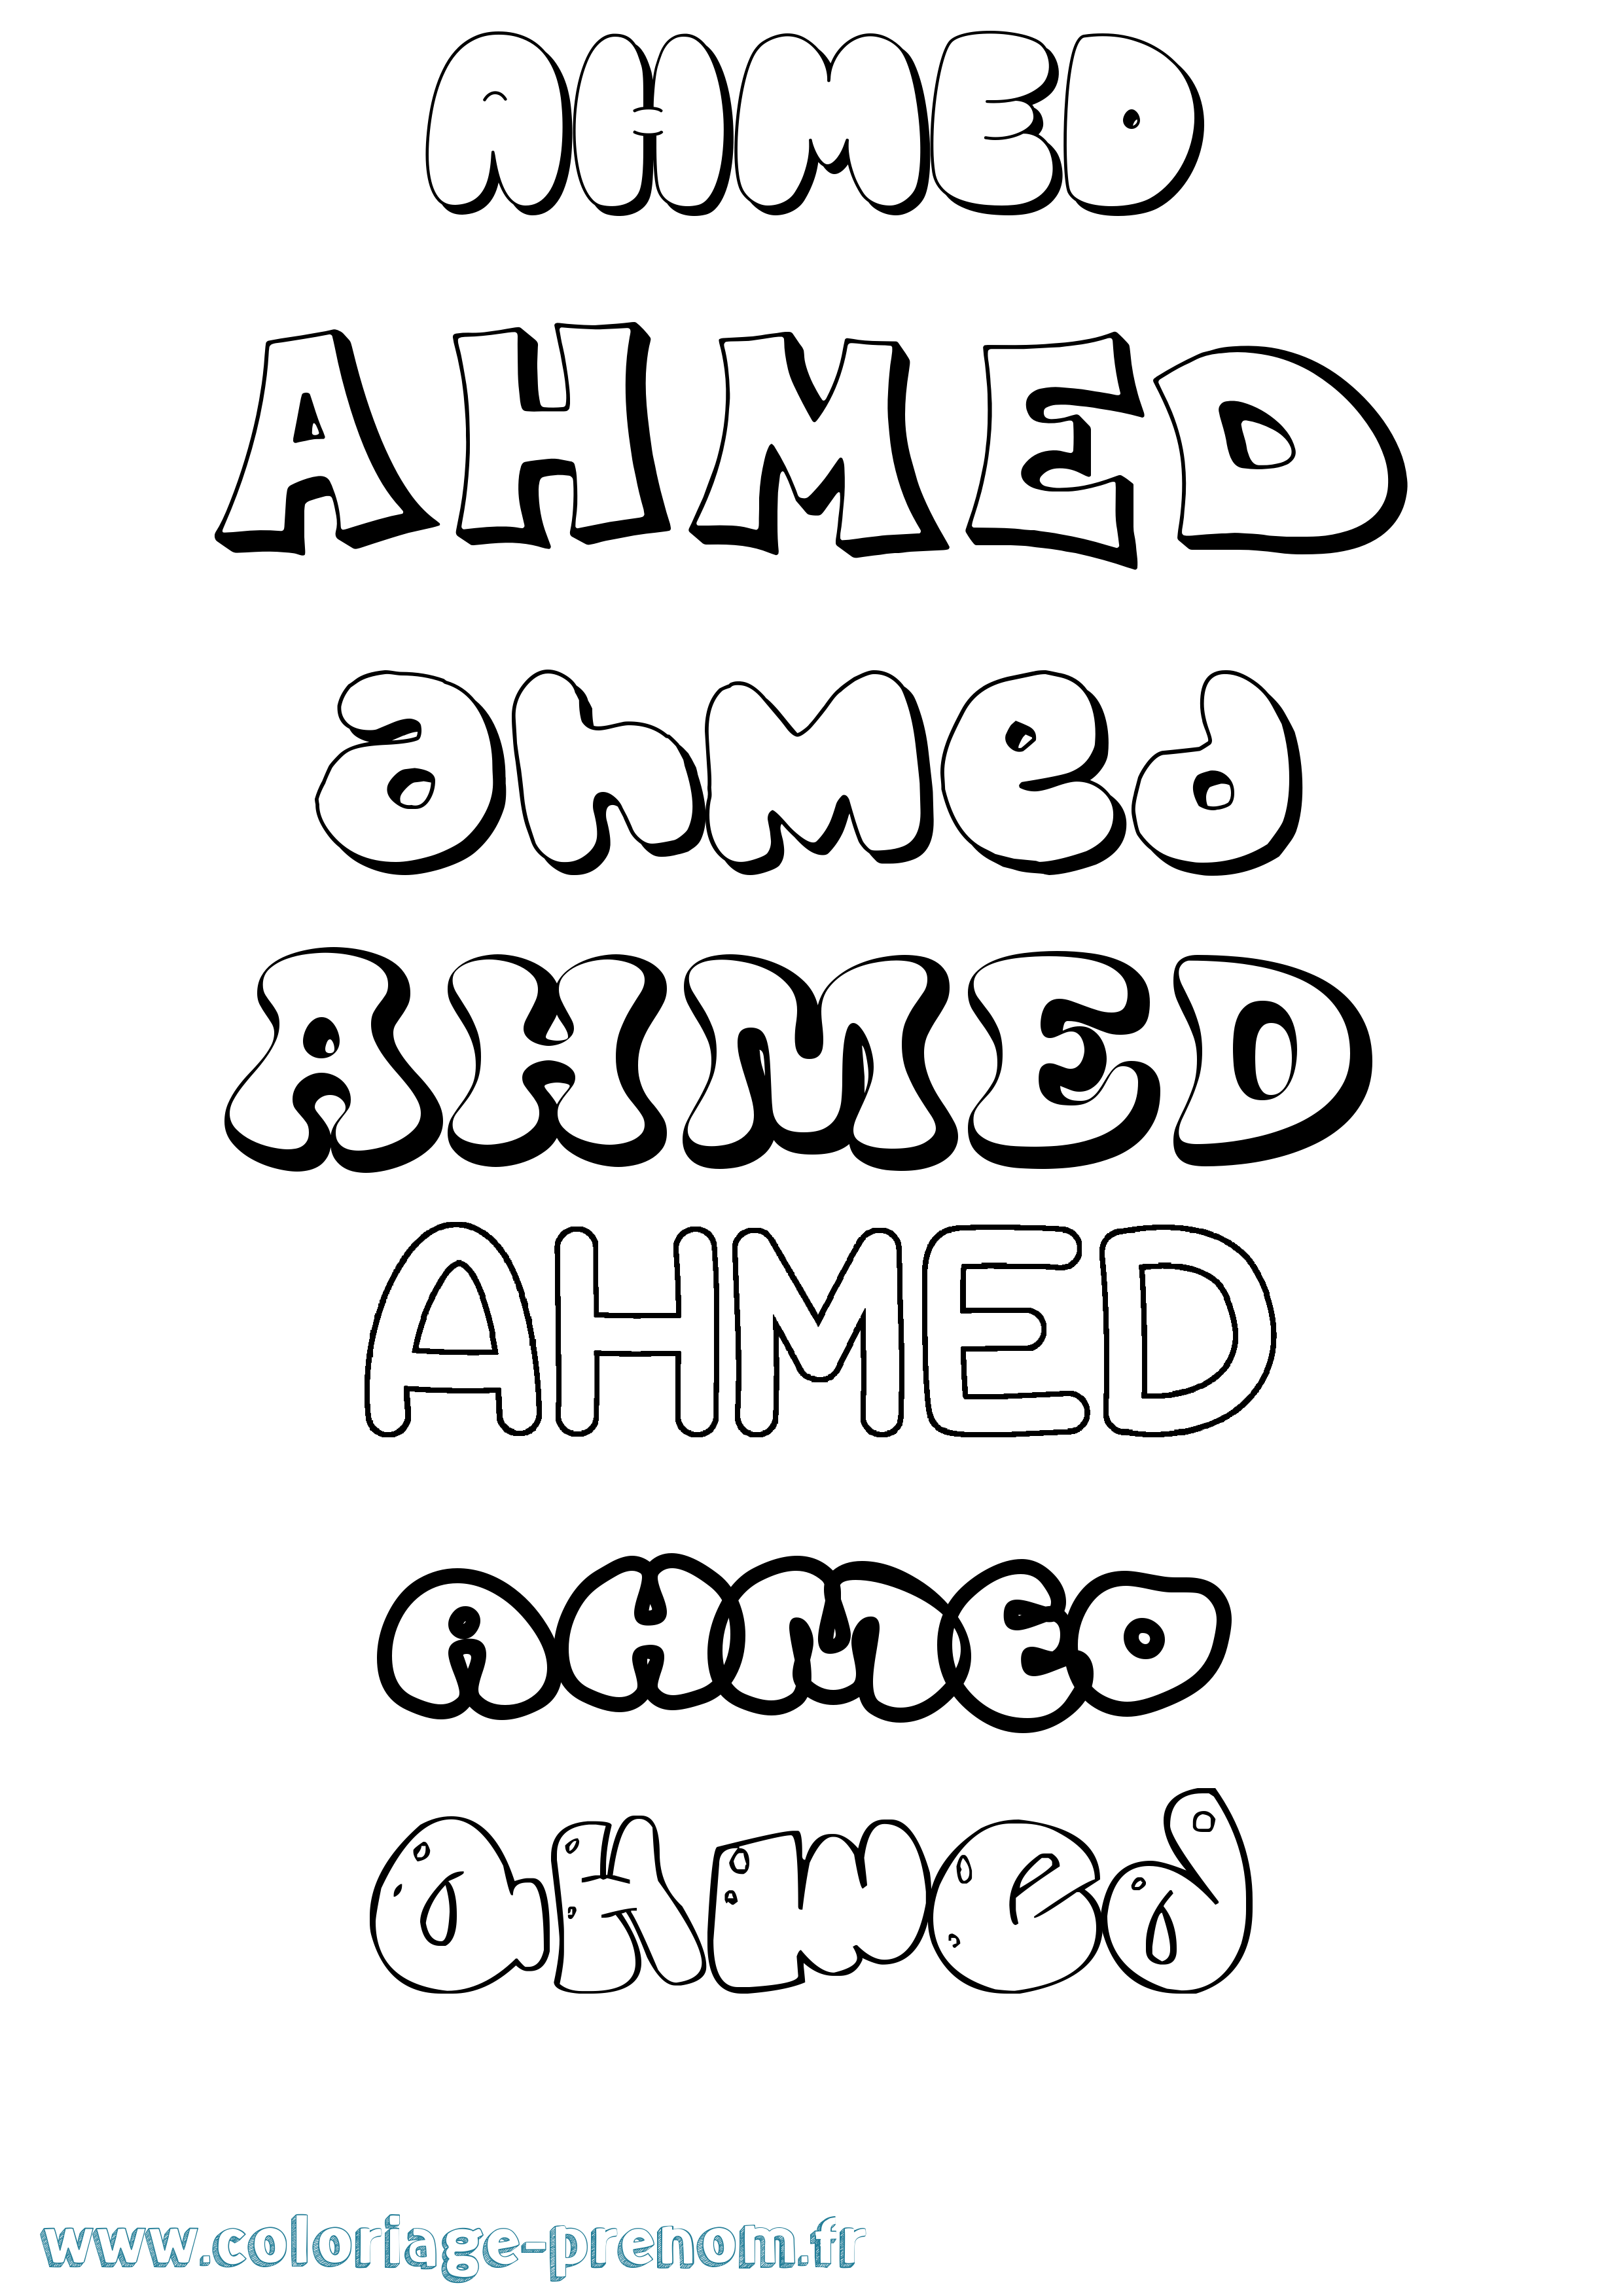 AHMED
AHMED
ahmed
AHMED
AHMED
AHMED
aHmed
www.coloriage-prenom.fr